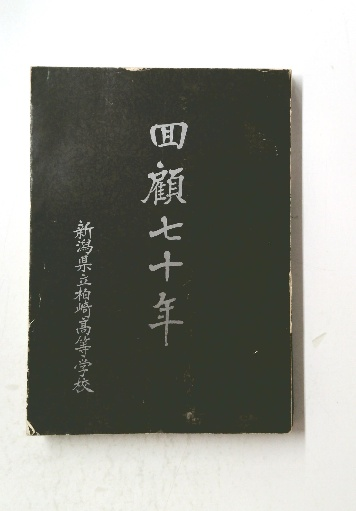 回顧七十年
新潟県立柏崎高等学校